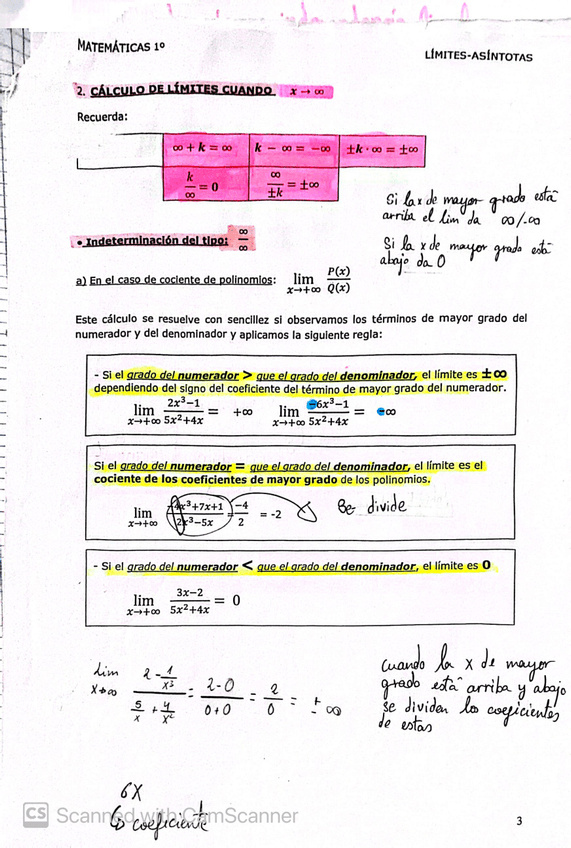 MATEMÁTICAS 1º
LÍMITES-ASÍNTOTAS
2. CÁLCULO DE LÍMITES CUANDO x → ∞
Recuerda:
∞ + k = ∞ k − ∞ = −∞ ±k · ∞ = ±∞
k/∞ = 0 ∞/±k = ±∞
Si la x de mayor grado está
arriba el lim da ∞/-∞
Si la x de mayor grado está
abajo da 0
• Indeterminación del tipo: ∞/∞
a) En el caso de cociente de polinomios: lim x→+∞ P(x)/Q(x)
Este cálculo se resuelve con sencillez si observamos los términos de mayor grado del
numerador y del denominador y aplicamos la siguiente regla:
- Si el grado del numerador > que el grado del denominador, el límite es ±∞
dependiendo del signo del coeficiente del término de mayor grado del numerador.
lim x→+∞ (2x³−1)/(5x²+4x) = +∞ lim x→+∞ (−6x³−1)/(5x²+4x) = −∞
Si el grado del numerador = que el grado del denominador, el límite es el
cociente de los coeficientes de mayor grado de los polinomios.
lim x→+∞ (−4x³+7x+1)/(2x³−5x) = −4/2 = -2 Se divide
- Si el grado del numerador < que el grado del denominador, el límite es 0
lim x→+∞ (3x−2)/(5x²+4x) = 0
lim x→∞ (2 - 1/x³)/(5/x + 4/x²) = (2-0)/(0+0) = 2/0 = ±∞
cuando la x de mayor
grado está arriba y abajo
se dividen los coeficientes
de estas
6X
↳ coeficiente
CS Scanned with CamScanner
3